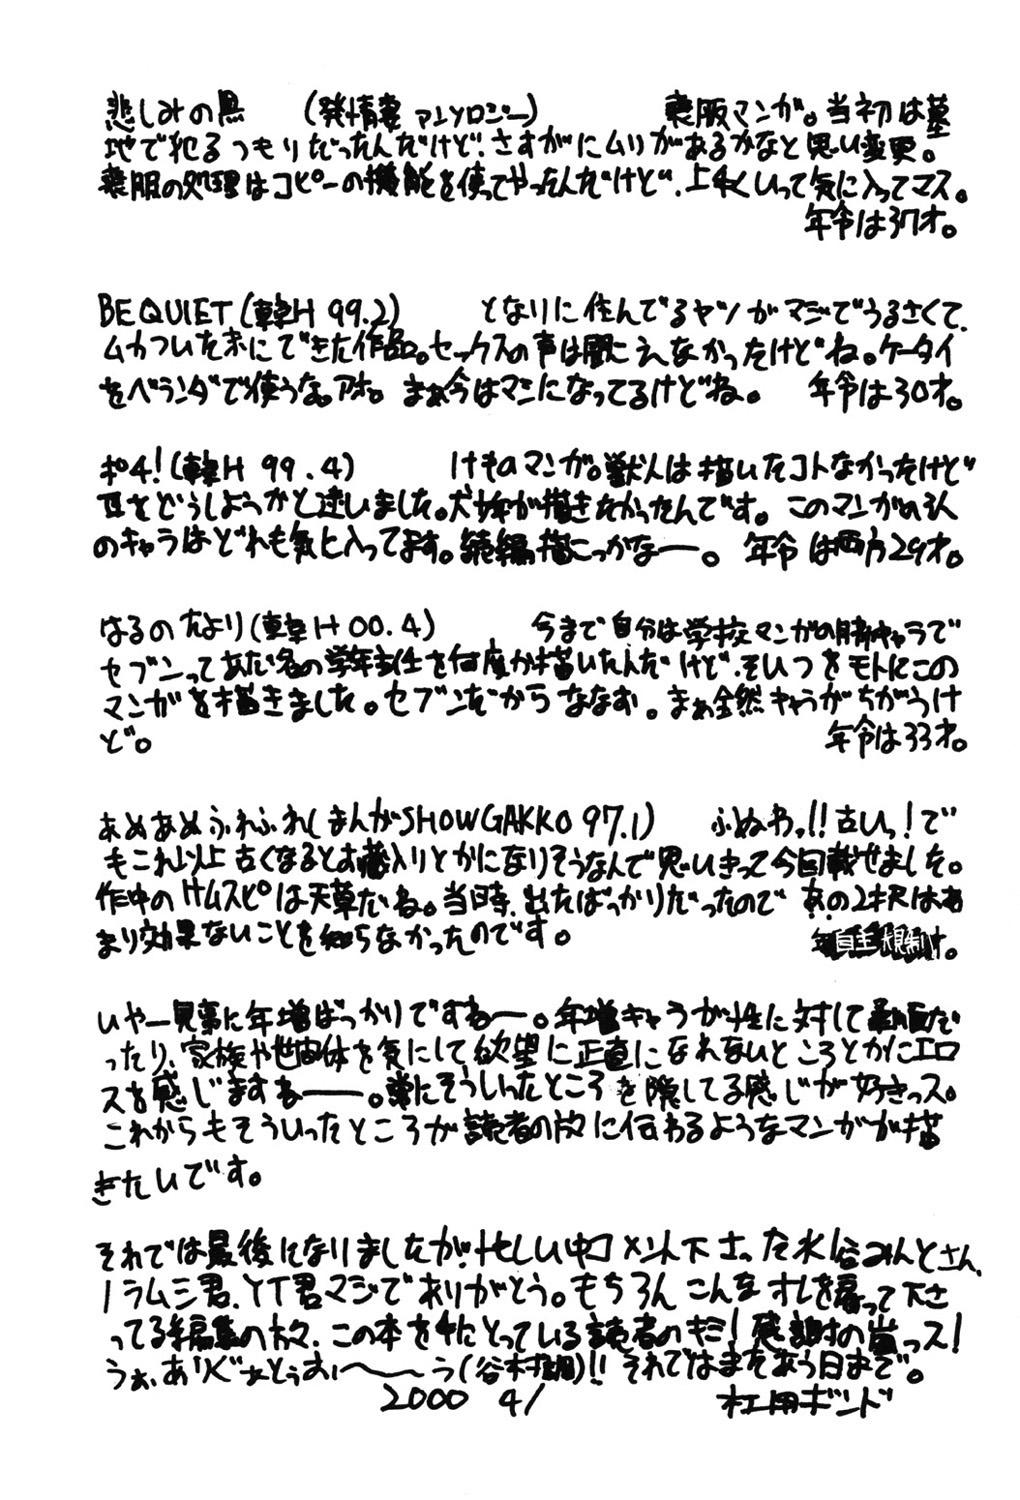 悲しみの黒　(発情妻 アンソロジー)　喪服マンガ。当初は墓
地で犯るつもりだったんだけど、さすがにムリがあるかなと思い変更。
喪服の処理はコピーの機能を使ってやったんだけど、上手くいって気に入ってマス。
年令は37才。
BE QUIET (華H 99.2)　となりに住んでるヤツがマジでうるさくて、
ムカついた末にできた作品。セックスの声は聞こえなかったけどね。ケータイ
をベランダで使うな。アホ。まぁ今はマシになってるけどね。　年令は30才。
ポチ!(華H 99.4)　けものマンガ。獣人は描いたコトなかったけど
耳をどうしようかと迷いました。犬が描きたかったんです。このマンガの3人
のキャラはどれも気に入ってます。続編描こっかなー。年令は両方29才。
はるのたより(華H 00.4)　今まで自分は学校マンガの脇キャラで
セブンってあだ名の学年主任を何度か描いたんだけど、そいつをモトにこの
マンガを描きました。セブンだからななお。まぁ全然キャラがちがうけ
ど。　年令は33才。
あめあめふれふれ(まんがSHOWGAKKO 97.1)　ふぬわっ!!古いっ!で
もこれ以上古くなるとお蔵入りとかになりそうなんで思いきって今回載せました。
作中のサムスピは天草だね。当時、出たばっかりだったので あの2択はあ
まり効果ないことを知らなかったのです。　自主規制。
いやー見事に年増ばっかりですねー。年増キャラが性に対して
ったり、家族や世間体を気にして欲望に正直になれないところとかにエロ
スを感じますねー。常にそういったところを隠してる感じが好きっス。
これからもそういったところが読者の方に伝わるようなマンガが描
きたいです。
それでは最後になりましたが、忙しい中コメント下さった水谷みんとさん、
ノラムシ君、YT君マジでありがとう。もちろんこんなオレを雇って下さ
ってる編集の方々、この本を手にとっている読者のキミ!感謝の嵐っス!
うぉ、ありがとぅおぉ〜〜う(谷村)!! それではまたあう日まで。
2000 4/　杜用ボンド